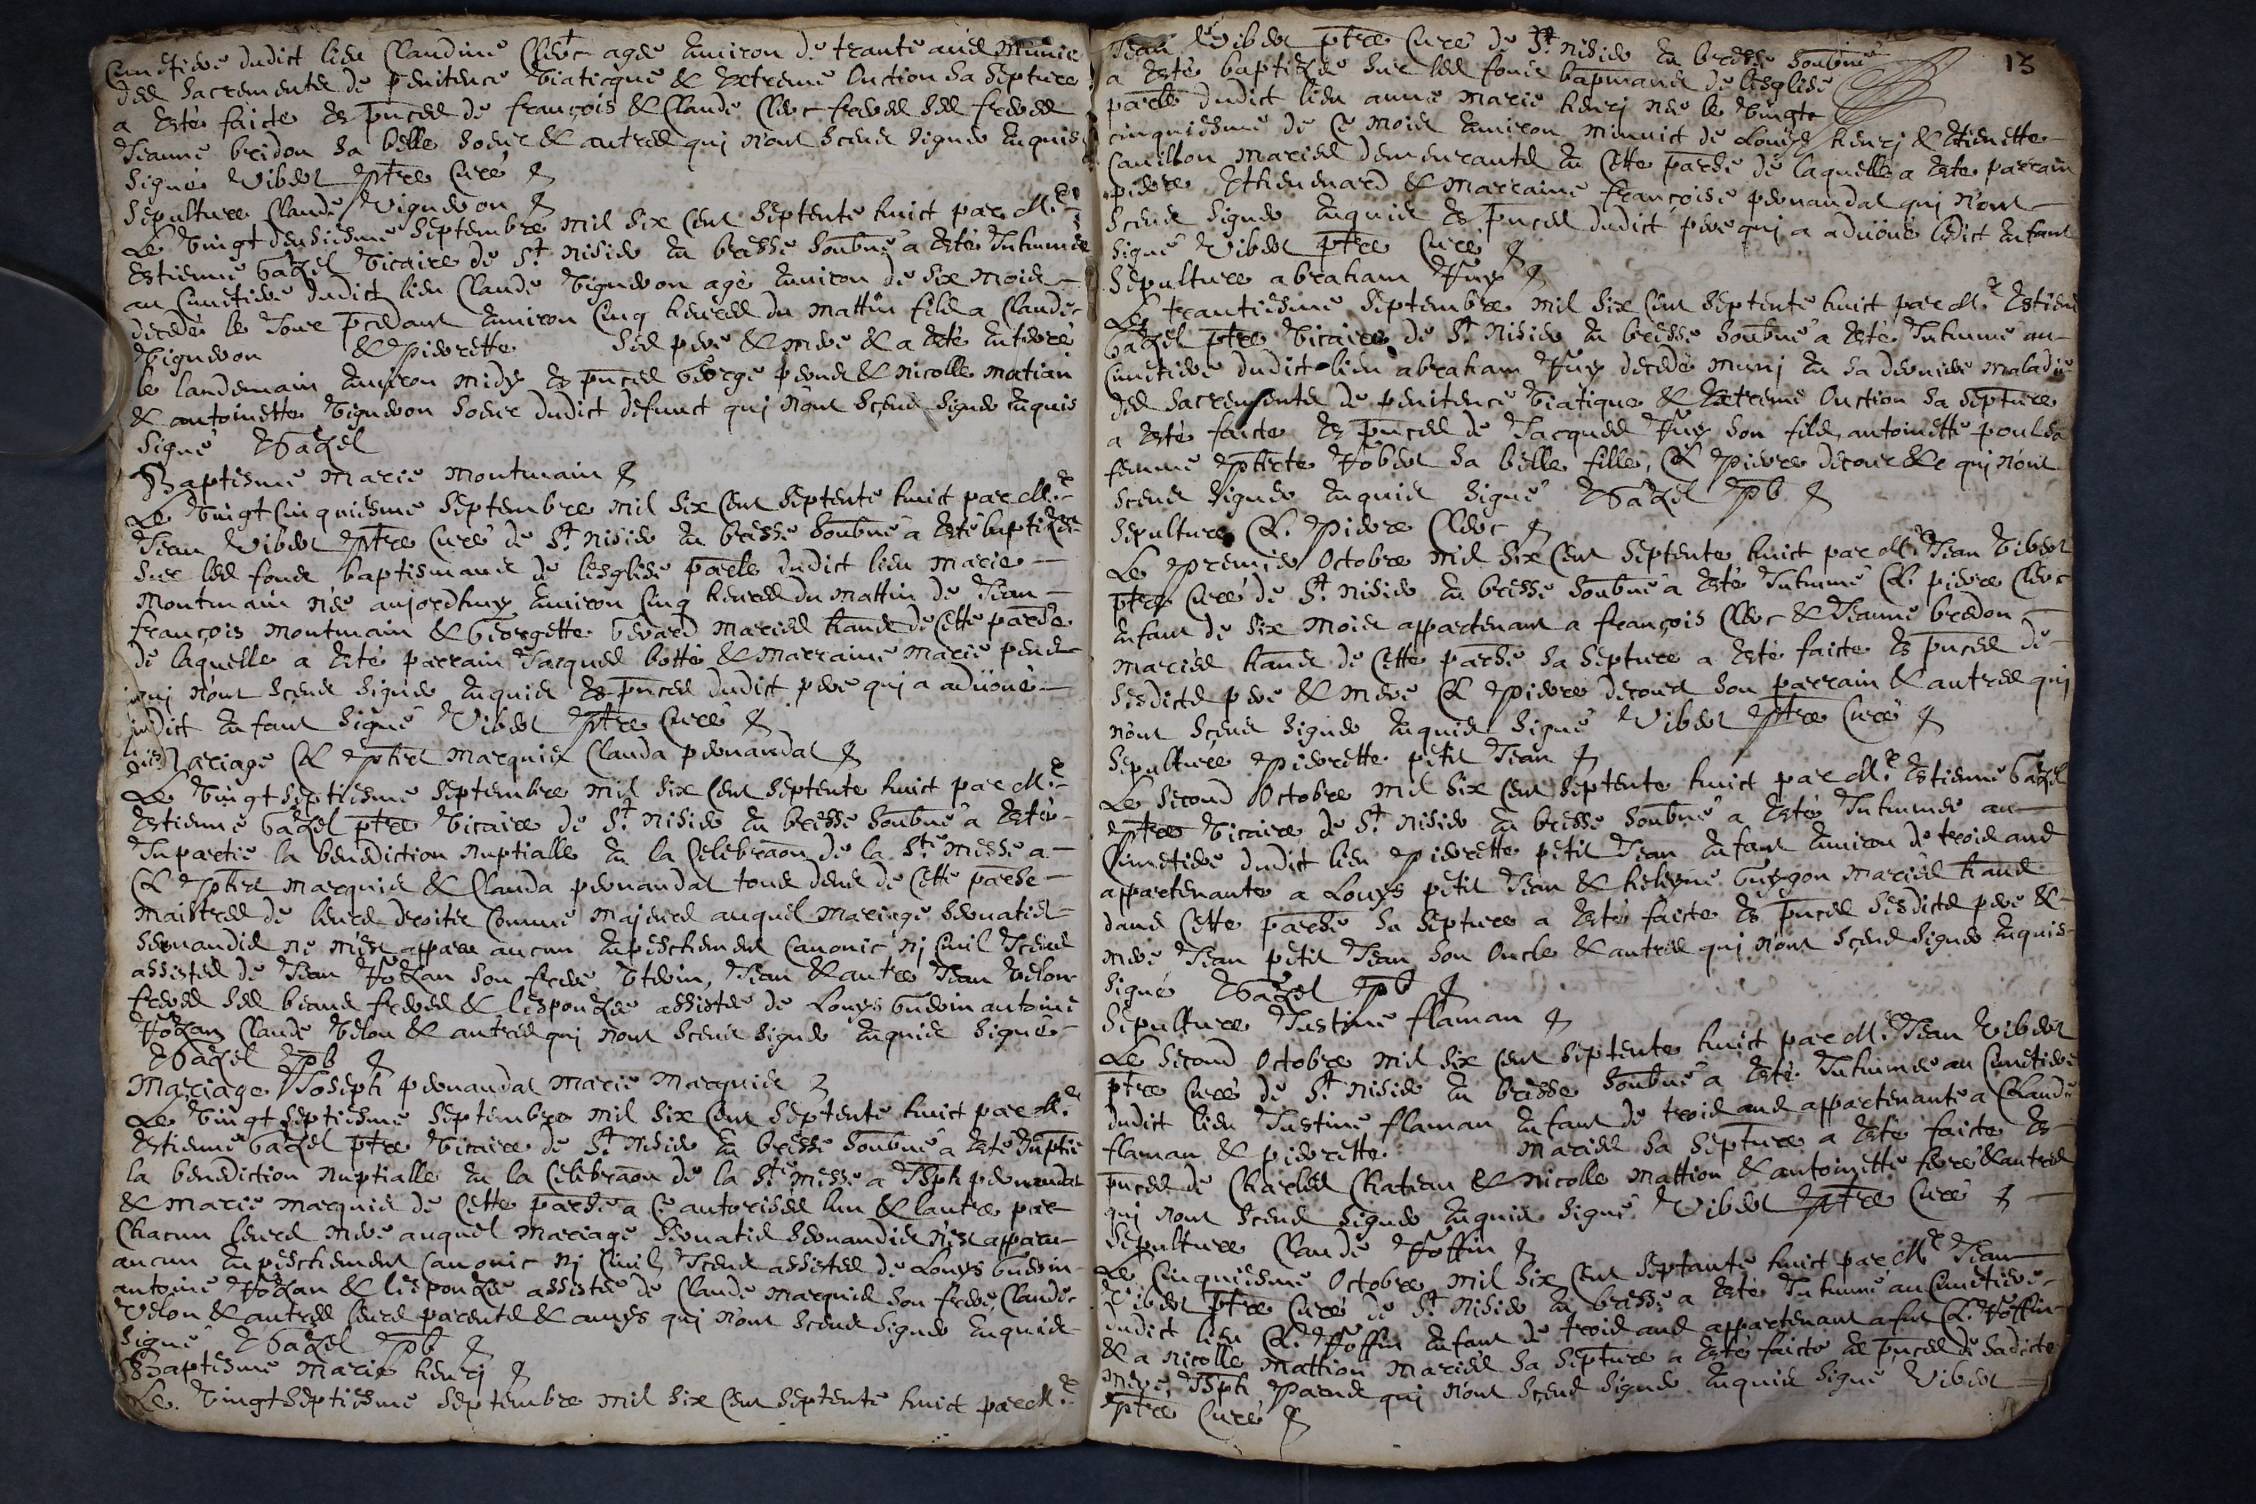 Cimetiere dudict lieu Claudine Clerc agee Environ de trante ans Munie
des Sacrementz de penitence Viaticque & Extreme Onction Sa Septure
a Esté faicte Es pnces de françois & Claude Clerc freres ses freres
Jeanne bridon Sa belle Soeur & autres qui n'ont Sceus Signer Enquis
Signé Vibert Ptre Curé
Sepulture Claude Vigneron
Le Vingt deusiesme Septembre mil Six Cent Septente huict par Mre
Estienne Gazel Vicaire de St Nisier En bresse Soubné a Esté Inhumé
au Cimetiere dudict lieu Claude Vigneron agé Environ de Six mois
decedé le Jour pcedant Environ Cinq heures du mattin fils a Claude
Vigneron & Pierrette Ses pere & mere & a Esté Enterré
le landemain Environ midy Es pnces George perne & Nicolle matian
& antoinette Vigneron Soeur dudict defunct qui n'ont Sceus Signer Enquis
Signé EGazel
Baptisme Marie Montmain
Le Vingt Cinquiesme Septembre mil Six Cent Septente huict par Mre
Jean Vibert Ptre Curé de St Nisier En bresse Soubné a Esté baptizée
Sur les fons baptismaus de lesglise parlle dudict lieu Marie
Montmain née aujordhuy Environ Cinq heures du mattin de Jean
françois Montmain & Georgette Gerard Mariés hans de Cette parse
de laquelle a Esté parrain Jacques botte & Marraine Marie perne
qui n'ont Sceus Signer Enquis Es pnces dudict pere qui a advoué
ledict Enfant Signé Vibert Ptre Curé
Mariage Cl Ptbert Marquis Clauda pernandat
Le Vingt Septiesme Septembre mil Six Cent Septente huict par Mre
Estienne Gazel ptre Vicaire de St Nisier En bresse Soubné a Esté
Impartie la benediction Nuptialle En la Celebraon de la Ste Messe a
Cl Ptbert Marquis & Clauda pernandat tous deus de Cette parse
Maistres de leurs droits Comme Majeurs auquel Mariage Servatis
Servandis ne n'est apparu aucun Enpeschement Canonic nj Civil Iceus
assistes de Jean Jozan Son frere Vterin, Jean & autre Jean Velon
freres Ses beaus freres & lespouzée assistée de Louys Guerin antoine
Jozan Claude Velon & autres qui n'ont Sceus Signer Enquis Signé
EGazel Pb
Mariage Joseph pernandat Marie Marquis
Le Vingt Septiesme Septembre mil Six Cent Septente huict par Mre
Estienne Gazel ptre Vicaire de St Nisier En bresse Soubné a Esté Imptie
la benediction Nuptialle En la Celebraon de la Ste Messe a Jsph pernandat
& Marie Marquis de Cette parse a Ce autorisés lun & lautre par
Chacun leurs mere auquel Mariage Servatis Servandis n'est apparu
aucun Enpeschement Canonic nj Civil, Iceus assistes de Louys Guerin
antoine Jozan & lespouzée assistée de Claude Marquis Son frere, Claude
Velon & autres leurs parents & amys qui n'ont Sceus Signer Enquis
Signé EGazel Pb
Baptisme Marie henrj
Le Vingt Septiesme Septembre mil Six Cent Septente huict par Mre
13
Jean Vibert ptre Curé de St Nisier En bresse Soubné
a Esté baptizée Sur les fons bapmaus de lesglise
parlle dudict lieu anne Marie henrj née le Vingt
cinquiesme de Ce mois Environ minuict de Louys henrj & Etienette
Canillon Mariés demeurantz En Cette parse de laquelle a Esté parrain
pierre Thieuenard & Marraine françoise pernandat qui n'ont
Sceus Signer Enquis Es pnces dudict pere qui a advoué ledict Enfant
Signé Vibert ptre Curé
Sepulture abraham Fuy
Le trantiesme Septembre mil Six Cent Septente huict par Mre Estiene
Gazel ptre Vicaire de St Nisier En bresse Soubné a Esté Inhumé au
Cimetiere dudict lieu abraham Fuy decedé munj En Sa derniere maladie
des Sacrementz de penitence Viatique & Extreme Onction Sa Septure
a Esté faicte Es pnces de Jacques Fuy Son fils, antoinette
femme Ptberte Jobert Sa belle fille, Cl Pierre &c qui n'ont
Sceus Signer Enquis Signé EGazel Pb
Sepulture Cl. Pierre Clerc
Le Premier Octobre Mil Six Cent Septente huict par Mre Jean Vibert
ptre Curé de St Nisier En bresse Soubné a Esté Inhumé Cl. pierre Clerc
Enfant de Six Mois appartenant a françois Clerc & Jeanne bredon
Mariés hans de Cette parse Sa Septure a Esté faicte Es pnces de
Sesdictz pere & mere Cl Pierre decourt Son parrain & autres qui
n'ont Sceus Signer Enquis Signé Vibert Ptre Curé
Sepulture Pierrette petit Jean
Le Second Octobre Mil Six Cent Septente huict par Mre Estienne Gazel
Ptre Vicaire de St Nisier En bresse Soubné a Esté Inhumée au
Cimetiere dudict lieu Pierrette petit Jean Enfant Environ de trois ans
appartenante a Louys petit Jean & heleyne Guygon Mariés hans
dans Cette parse Sa Septure a Esté faicte Es pnces Sesdictz pere &
mere Jean petit Jean Son Oncle & autres qui n'ont Sceus Signer Enquis
Signé EGazel Pb
Sepulture Justine flaman
Le Second Octobre Mil Six Cent Septente huict par Mre Jean Vibert
ptre Curé de St Nisier En bresse Soubné a Esté Inhumée au Cimetiere
dudict lieu Justine flaman Enfant de trois ans appartenante a Claude
flaman & pierrette Mariés Sa Septure a Esté faicte Es
pnces de Charles Chateau & Nicolle Mattion & antoinette & autres
qui n'ont Sceus Signer Enquis Signé Vibert Ptre Curé
Sepulture Claude Joffin
Le Cinquiesme Octobre Mil Six Cent Septante huict par Mre Jean
Vibert ptre Curé de St Nisier En bresse a Esté Inhumé au Cimetiere
dudict lieu Cl. Joffin Enfant de trois ans appartenant a fut Cl. Joffin
& a Nicolle Mattion Mariés Sa Septure a Esté faicte Es pnces de Sadicte
mere, Jsph Parend qui n'ont Sceus Signer Enquis Signé Vibert
Ptre Curé